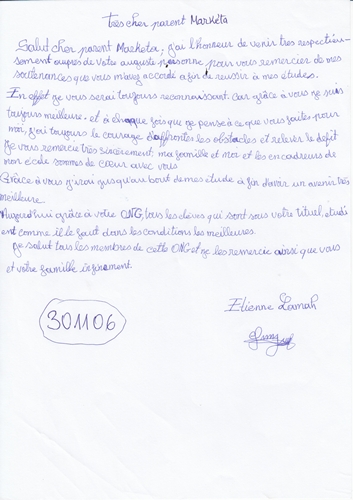 Très cher parent Markéta
Salut cher parent Marketa, j'ai l'honneur de venir très respectieu-
sement auprès de votre auguste personne pour vous remercier de mes
soutenances que vous m'avez accordé afin de reussir à mes études.
En effet je vous serai toujours reconnaissant. Car grâce à vous je suis
toujours meilleure, et à chaque fois que je pense à ce que vous faites pour
moi, j'ai toujours le courage d'affronter les obstacles et relever le defit
Je vous remercie très sincèrement, ma famille et moi et les encadreurs de
mon école sommes de cœur avec vous
Grâce à vous j'irai jusqu'au bout de mes étude à fin d'avoir un avenir très
meilleure.
Aujourd'hui grâce à votre ONG, tous les élèves qui sont sous votre tituel, étudi
ent comme il le faut dans les conditions les meilleures.
Je salut tous les membres de cette ONG et je les remercie ainsi que vous
et votre famille infiniment.
Etienne Lamah
301106